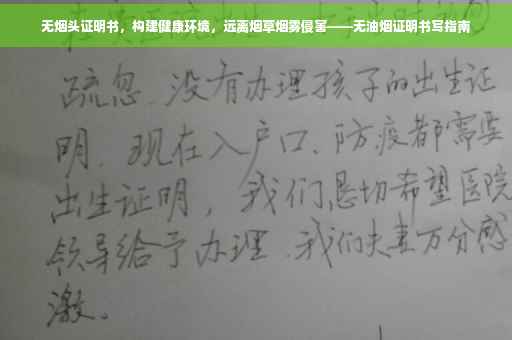 无烟头证明书，构建健康环境，远离烟草烟雾侵害——无油烟证明书写指南
疏忽、没有办理孩子的出生证
明、现在入户口、防疫都需要
出生证明，我们恳切希望医院
领导给予办理、我们夫妻万分感
激。